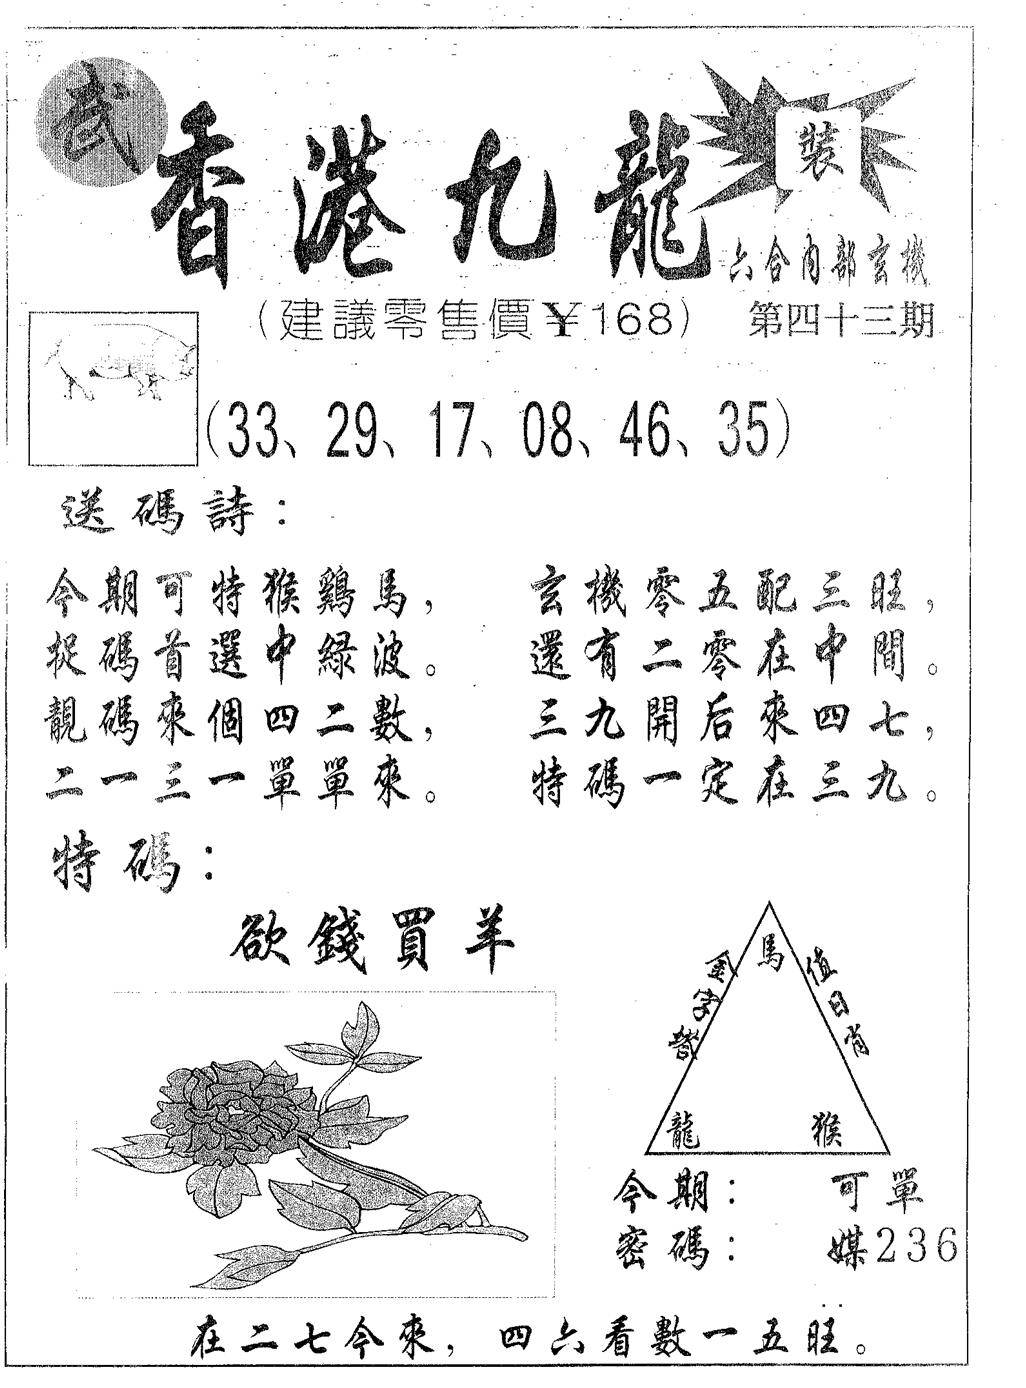 武
香港九龍
裝
六合內部玄機
(建議零售價¥168) 第四十三期
(33、29、17、08、46、35)
送碼詩:
今期可特猴鷄馬,
捉碼首選中綠波。
靚碼來個四二數,
二一三一單單來。
玄機零五配三旺,
還有二零在中間。
三九開后來四七,
特碼一定在三九。
特碼:
欲錢買羊
金字
值日肖
馬
龍 猴
今期: 可單
密碼: 媒236
在二七今來,四六看數一五旺。